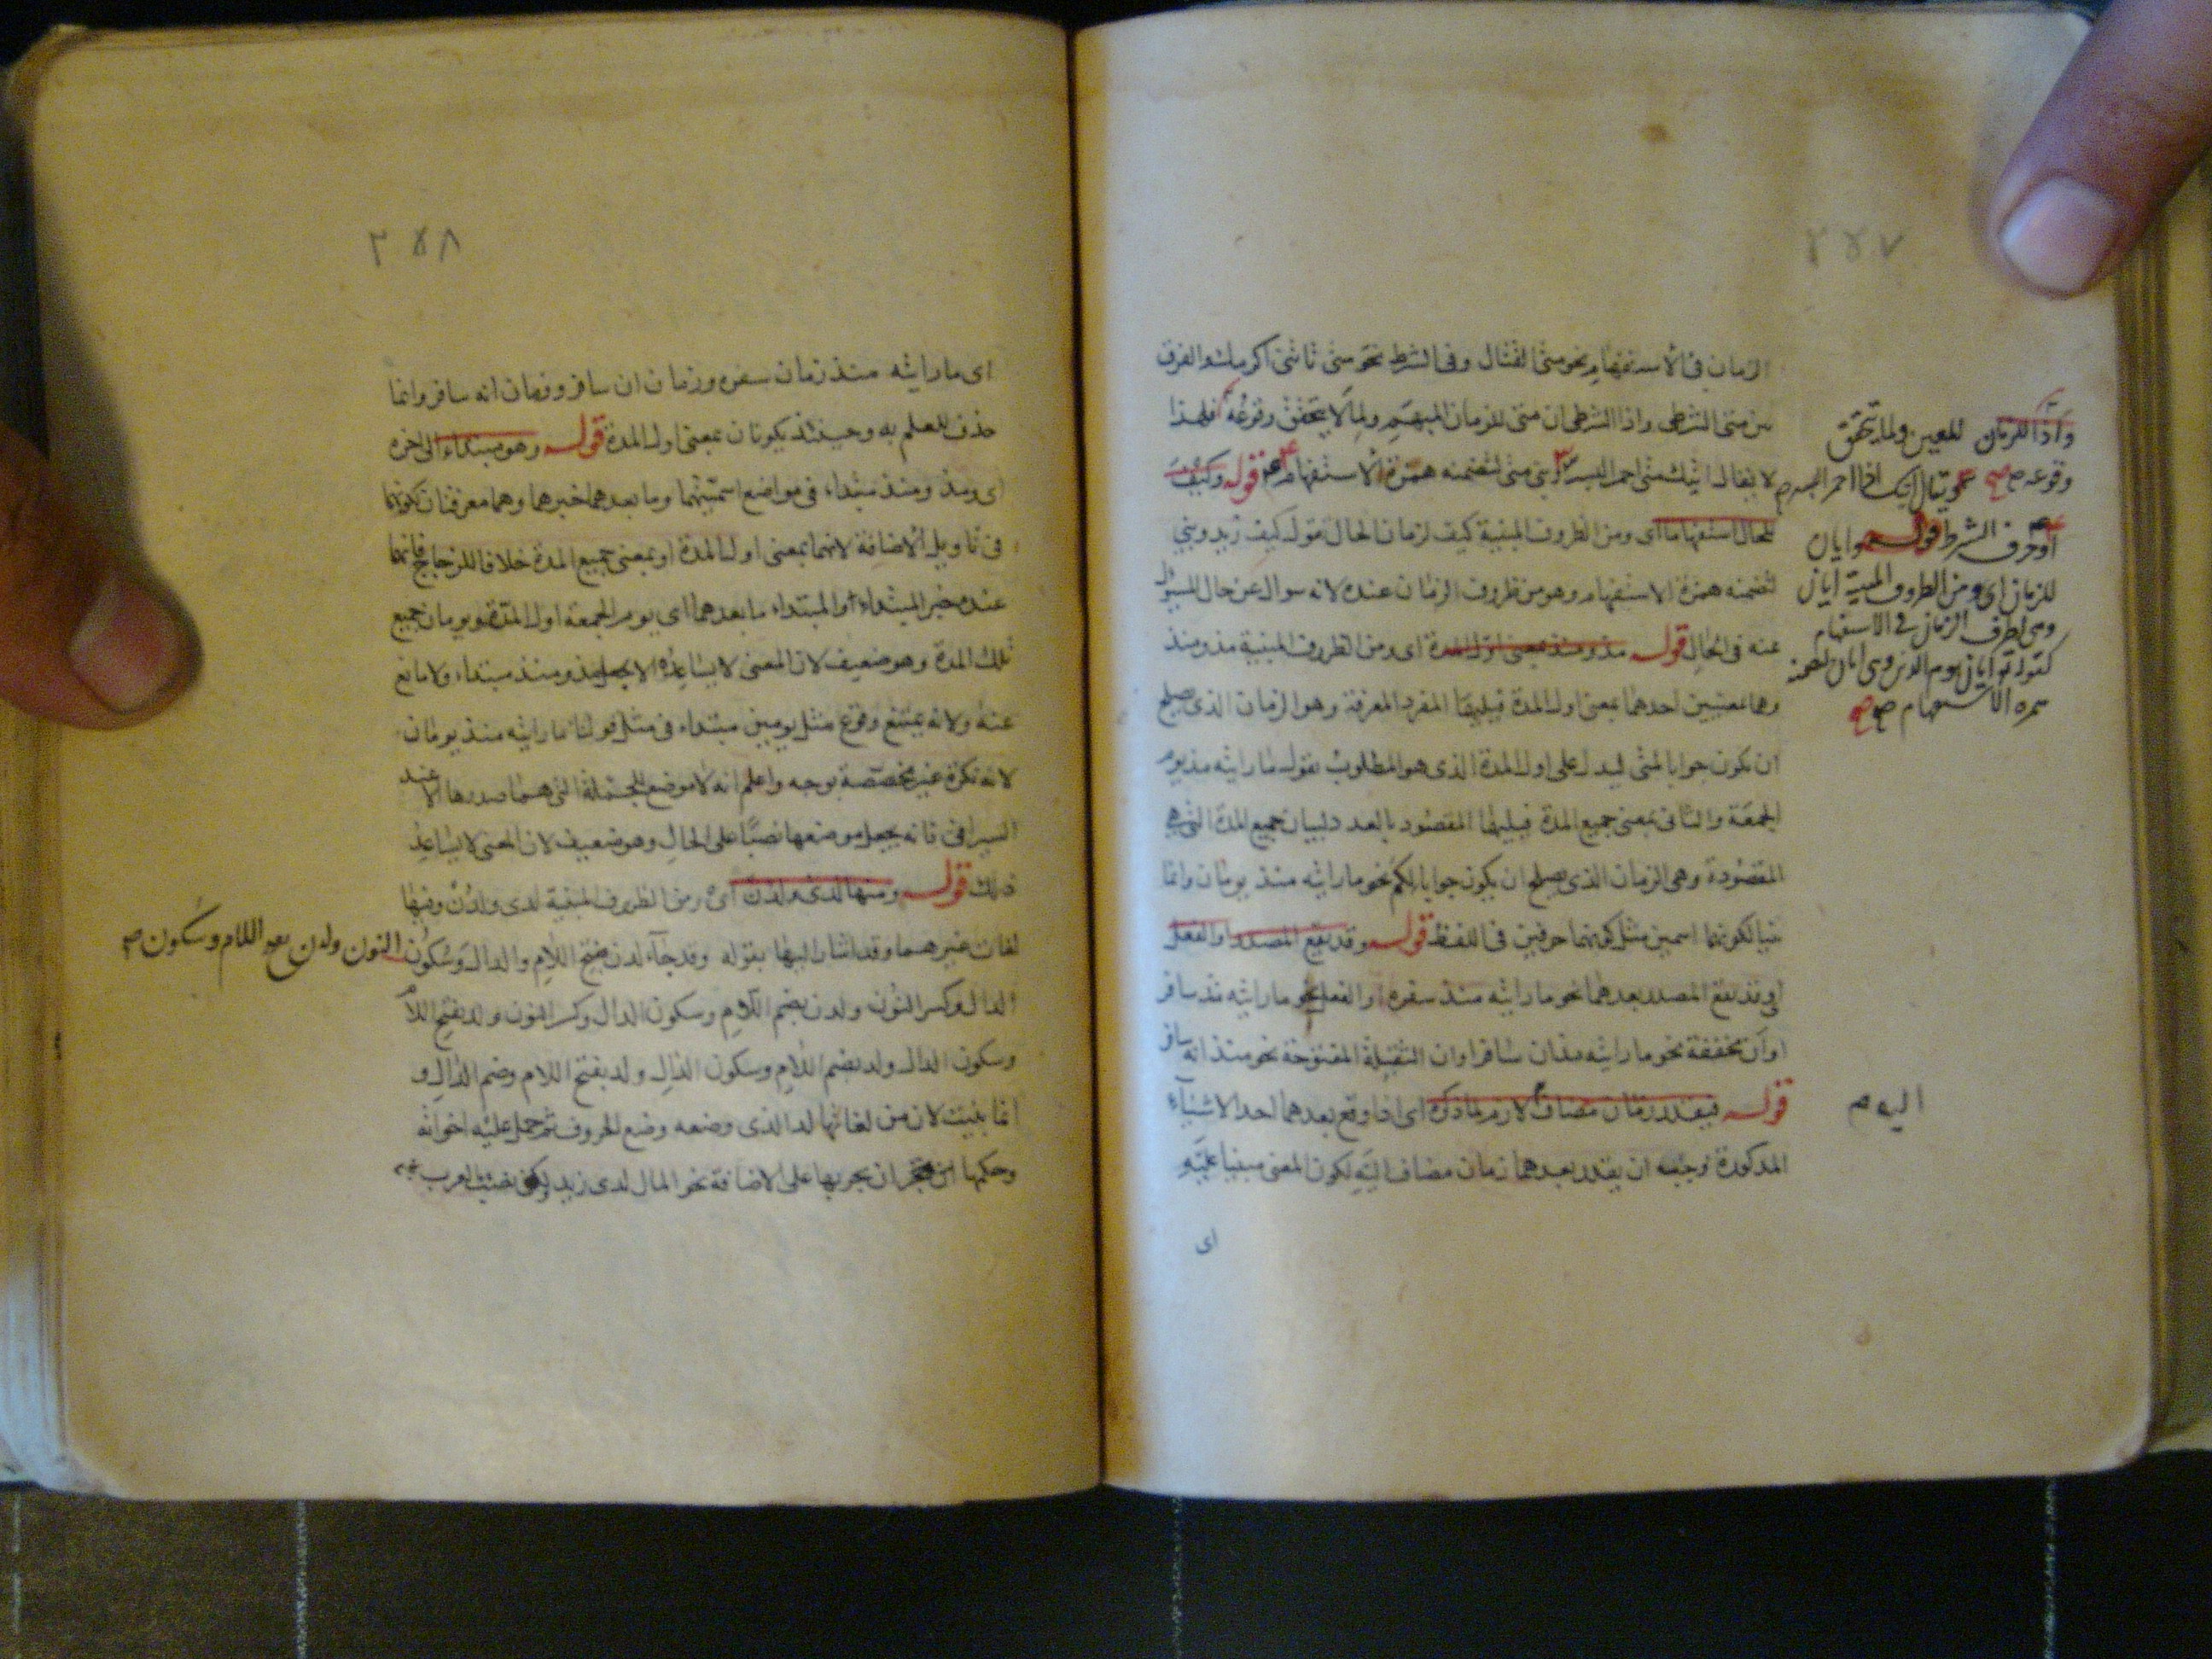 ٢٥٧
الزمان فى الاستفهام نحو متى القتال وفى الشرط نحو متى تأتنى اكرمك والفرق
بين متى الشرطى واذا الشرطى ان متى للزمان المبهم ولما لا يتحقق وقوعه فلهذا
لا يقال اتيك متى احمر البسر وبنى متى لتضمنه همزة الاستفهام قوله وكيف
للحال استفهاما اى ومن الظروف المبنية كيف لزمان الحال تقول كيف زيد وبنى
لتضمنه همزة الاستفهام وهو من ظروف الزمان عنده لانه سوال عن حال المسئول
عنه فى الحال قوله مذ ومنذ بمعنى اول المدة اى ومن الظروف المبنية مذ ومنذ
وهما بمعنيين احدهما بمعنى اول المدة فيليهما المفرد المعرفة وهو الزمان الذى يصلح
ان يكون جوابا لمتى ليدل على اول المدة الذى هو المطلوب تقول ما رايته مذ يوم
الجمعة والثانى بمعنى جميع المدة فيليهما المقصود بالعدد لبيان جميع المدة التى هى
المقصودة وهى الزمان الذى يصلح ان يكون جوابا لكم نحو ما رايته منذ يومان وانما
بنيا لكونهما اسمين مثل كونهما حرفين فى اللفظ قوله وقد يقع المصدر او الفعل
اى وقد يقع المصدر بعدهما نحو ما رايته منذ سفره او الفعل نحو ما رايته مذ سافر
او ان مخففة نحو ما رايته مذ ان سافر او ان الثقيلة المفتوحة نحو منذ انه سافر
قوله فيقدر زمان مضاف لازم لما ذكره اى اذا وقع بعدهما احد الاشياء
المذكورة وجب ان يقدر بعدهما زمان مضاف اليه لكون المعنى مبنيا عليه
اى
واذا للزمان المعين ولما يتحقق
وقوعه صح نحو يقال اتيك اذا احمر البسر
او حرف الشرط قوله وايان
للزمان اى ومن الظروف المبنية ايان
وهى لظرف الزمان فى الاستفهام
كقوله ايان يوم الدين وبنى ايان لتضمنه
همزه الاستفهام صح
اليه
٢٥٨
اى ما رايته منذ زمان سفره وزمان ان سافر وزمان انه سافر وانما
حذف للعلم به وحينئذ يكونان بمعنى اول المدة قوله وهو مبتداء الى اخره
اى ومذ ومنذ مبتداء فى مواضع اسميتهما وما بعدهما خبرهما وهما معرفتان لكونهما
فى تاويل الاضافة لانهما بمعنى اول المدة او بمعنى جميع المدة خلافا للزجاج فانهما
عنده خبر المبتداء والمبتداء ما بعدهما اى يوم الجمعة اول المدة ويومان جميع
تلك المدة وهو ضعيف لان المعنى لا يساعده الا بجعل مذ ومنذ مبتداء ولا مانع
عنه ولانه يمتنع وقوع مثل يومين مبتداء فى مثل قولنا ما رايته منذ يومان
لانه نكرة غير مخصصة بوجه واعلم انه لا موضع للجملة التى هما صدرها الا عند
السيرافى فانه يجعل موضعها نصبا على الحال وهو ضعيف لان المعنى لا يساعد
ذلك قوله ومنها لدى ولدن اى ومن الظروف المبنية لدى ولدن وفيها
لغات غيرهما وقد اشار اليها بقوله وقد جآء لدن بفتح اللام والدال وسكون
الدال وكسر النون ولدن بضم اللام وسكون الدال وكسر النون ولد بفتح اللام
وسكون الدال ولد بضم اللام وسكون الدال ولد بفتح اللام وضم الدال و
انما بنيت لان من لغاتها لد الذى وضعه وضع الحروف ثم حمل عليه اخواته
وحكمها ان يجر بها على الاضافة نحو المال لدى زيد ولكن نصبت العرب
النون ولدن بفتح اللام وسكون